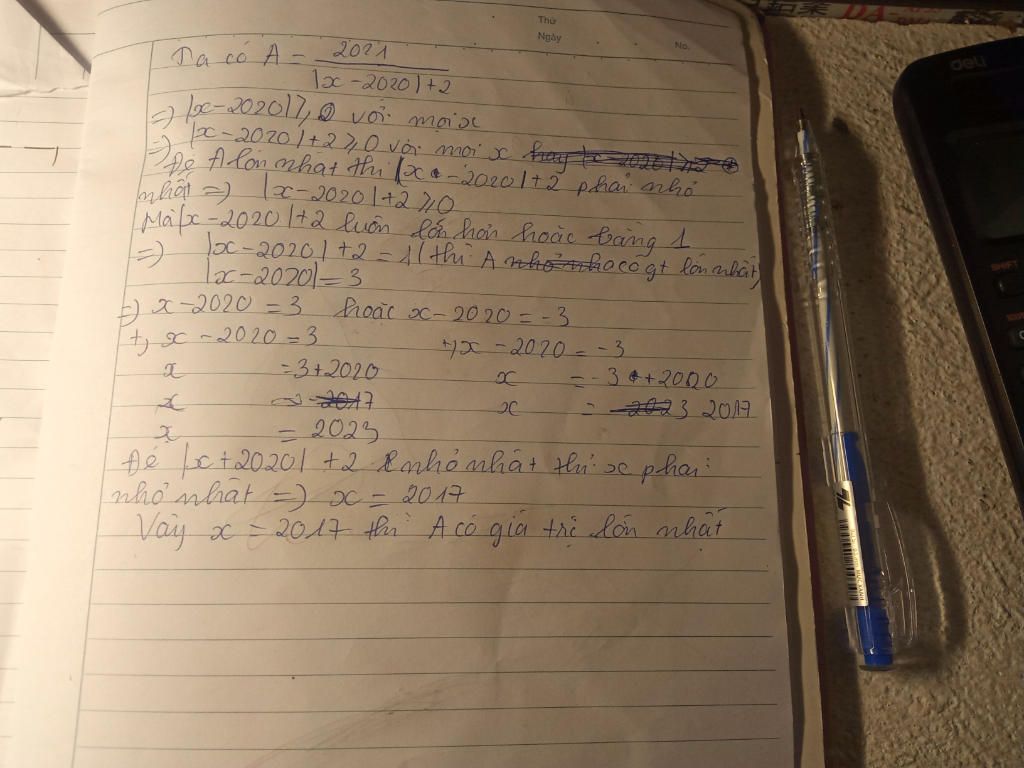 Thứ
Ngày
No.
Ta có A = 2021 / |x - 2020| + 2
=) |x - 2020| ⩾ 0 với mọi x
=) |x - 2020| + 2 ⩾ 0 với mọi x
Để A lớn nhất thì |x - 2020| + 2 phải nhỏ
nhất =) |x - 2020| + 2 ⩾ 0
Mà |x - 2020| + 2 luôn lớn hơn hoặc bằng 1
=) |x - 2020| + 2 = 1 (thì A có gt lớn nhất)
|x - 2020| = 3
=) x - 2020 = 3 hoặc x - 2020 = -3
+, x - 2020 = 3 +, x - 2020 = -3
x = 3 + 2020 x = -3 + 2020
x = 2017 x = 2023 2017
x = 2023
Để |x + 2020| + 2 nhỏ nhất thì x phải
nhỏ nhất =) x = 2017
Vậy x = 2017 thì A có giá trị lớn nhất
deli
SHIFT